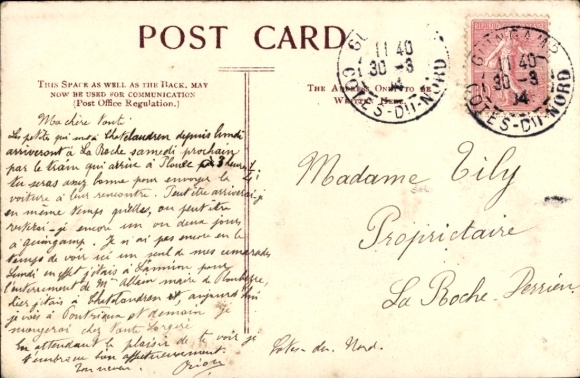 POST CARD
THIS SPACE AS WELL AS THE BACK, MAY
NOW BE USED FOR COMMUNICATION
(Post Office Regulation.)
THE ADDRESS ONLY TO BE
WRITTEN HERE.
GUINGAMP
11 40
30 -3
04
CÔTES-DU-NORD
GUINGAMP
11 40
30 -3
04
CÔTES-DU-NORD
Ma chère tante!
Les petits qui sont à Chatelaudren depuis lundi
arriveront à La Roche samedi prochain
par le train qui arrive à 3 heures
tu seras assez bonne pour envoyer la
voiture à leur rencontre. Peut être arriverai-je
en même temps qu'elles, ou peut être
resterai-je encore un ou deux jours
à guingamp. Je n'ai pas encore eu le
temps de voir ici un seul de mes camarades
Lundi en effet j'étais à Lannion pour
l'enterrement de Mr maire de
hier j'étais à Chatelaudren et, aujourd'hui
je vais à Pontrieux et demain je
mangerai chez Tante
En attendant le plaisir de te voir je
t'embrasse bien affectueusement.
Ton neveu.
Madame Tily
Propriétaire
La Roche-Derrien
Côtes du Nord.